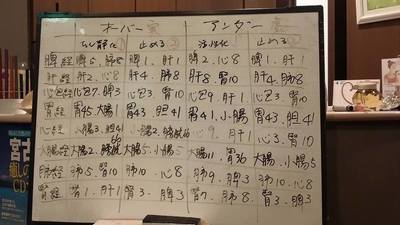 オーバー 実 アンダー 虚
沈静化 止める 活性化 止める
脾経 脾5、肺8 脾1、肝1 脾2、心8 脾1、肝1
肝経 肝2、心8 肝4、肺8 肝8、腎10 肝4、肺8
心包経 心包7、脾3 心包3、腎10 心包9、肝1 心包3、腎10
胃経 胃45、大腸1 胃43、胆41 胃41、小腸5 胃43、胆41
心経 心3、腎10
大腸経 大腸2、膀胱66 大腸5、小腸5 大腸11、胃36 大腸5、小腸5
肺経 肺5、腎10 肺10、心8 肺9、脾3 肺10、心8
腎経 腎1、肝1 腎3、脾3 腎7、肺8 腎3、脾3
宮古
癒しの
CD